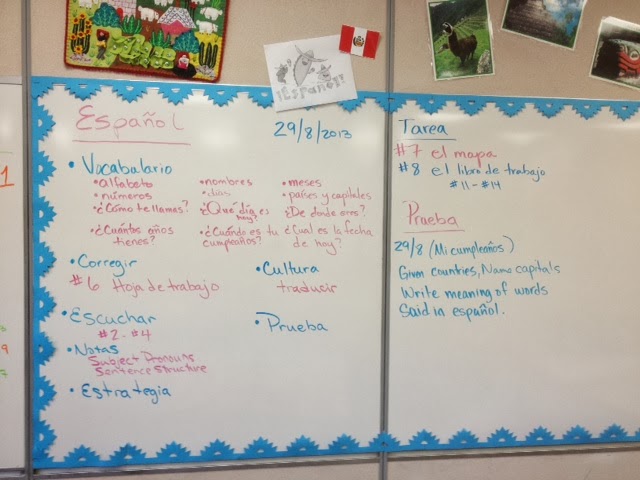 ¡Español!
Español
29/8/2013
• Vocabulario
• alfabeto
• números
• ¿Cómo te llamas?
• ¿Cuántos años tienes?
• nombres
• días
¿Qué día es hoy?
• ¿Cuándo es tu cumpleaños?
• meses
• países y capitales
¿De dónde eres?
• ¿Cual es la fecha de hoy?
• Corregir
#6 Hoja de trabajo
• Cultura
traducir
• Escuchar
#2 - #4
• Prueba
• Notas
Subject Pronouns
Sentence Structure
• Estrategia
Tarea
#7 el mapa
#8 el libro de trabajo
#11 - #14
Prueba
29/8 (Mi cumpleaños)
Given countries, Name capitals
Write meaning of words
Said in español.
1
9
7